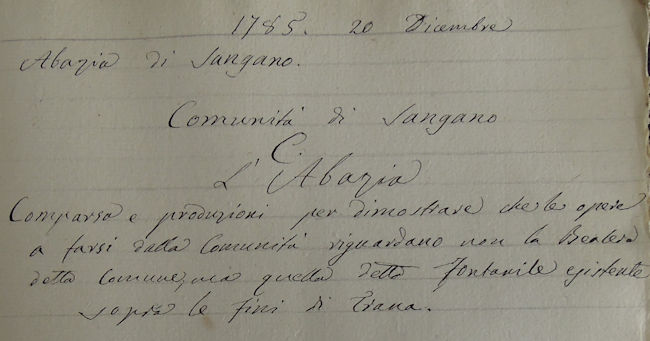 1785. 20 Dicembre
Abazia di Sangano.
Comunità di Sangano
C.
L'Abazia
Comparsa e produzioni per dimostrare che le opere
a farsi dalla Comunità riguardano non la Bealera
detta Comune, ma quella detta Fontanile esistente
sopra le fini di Trana.